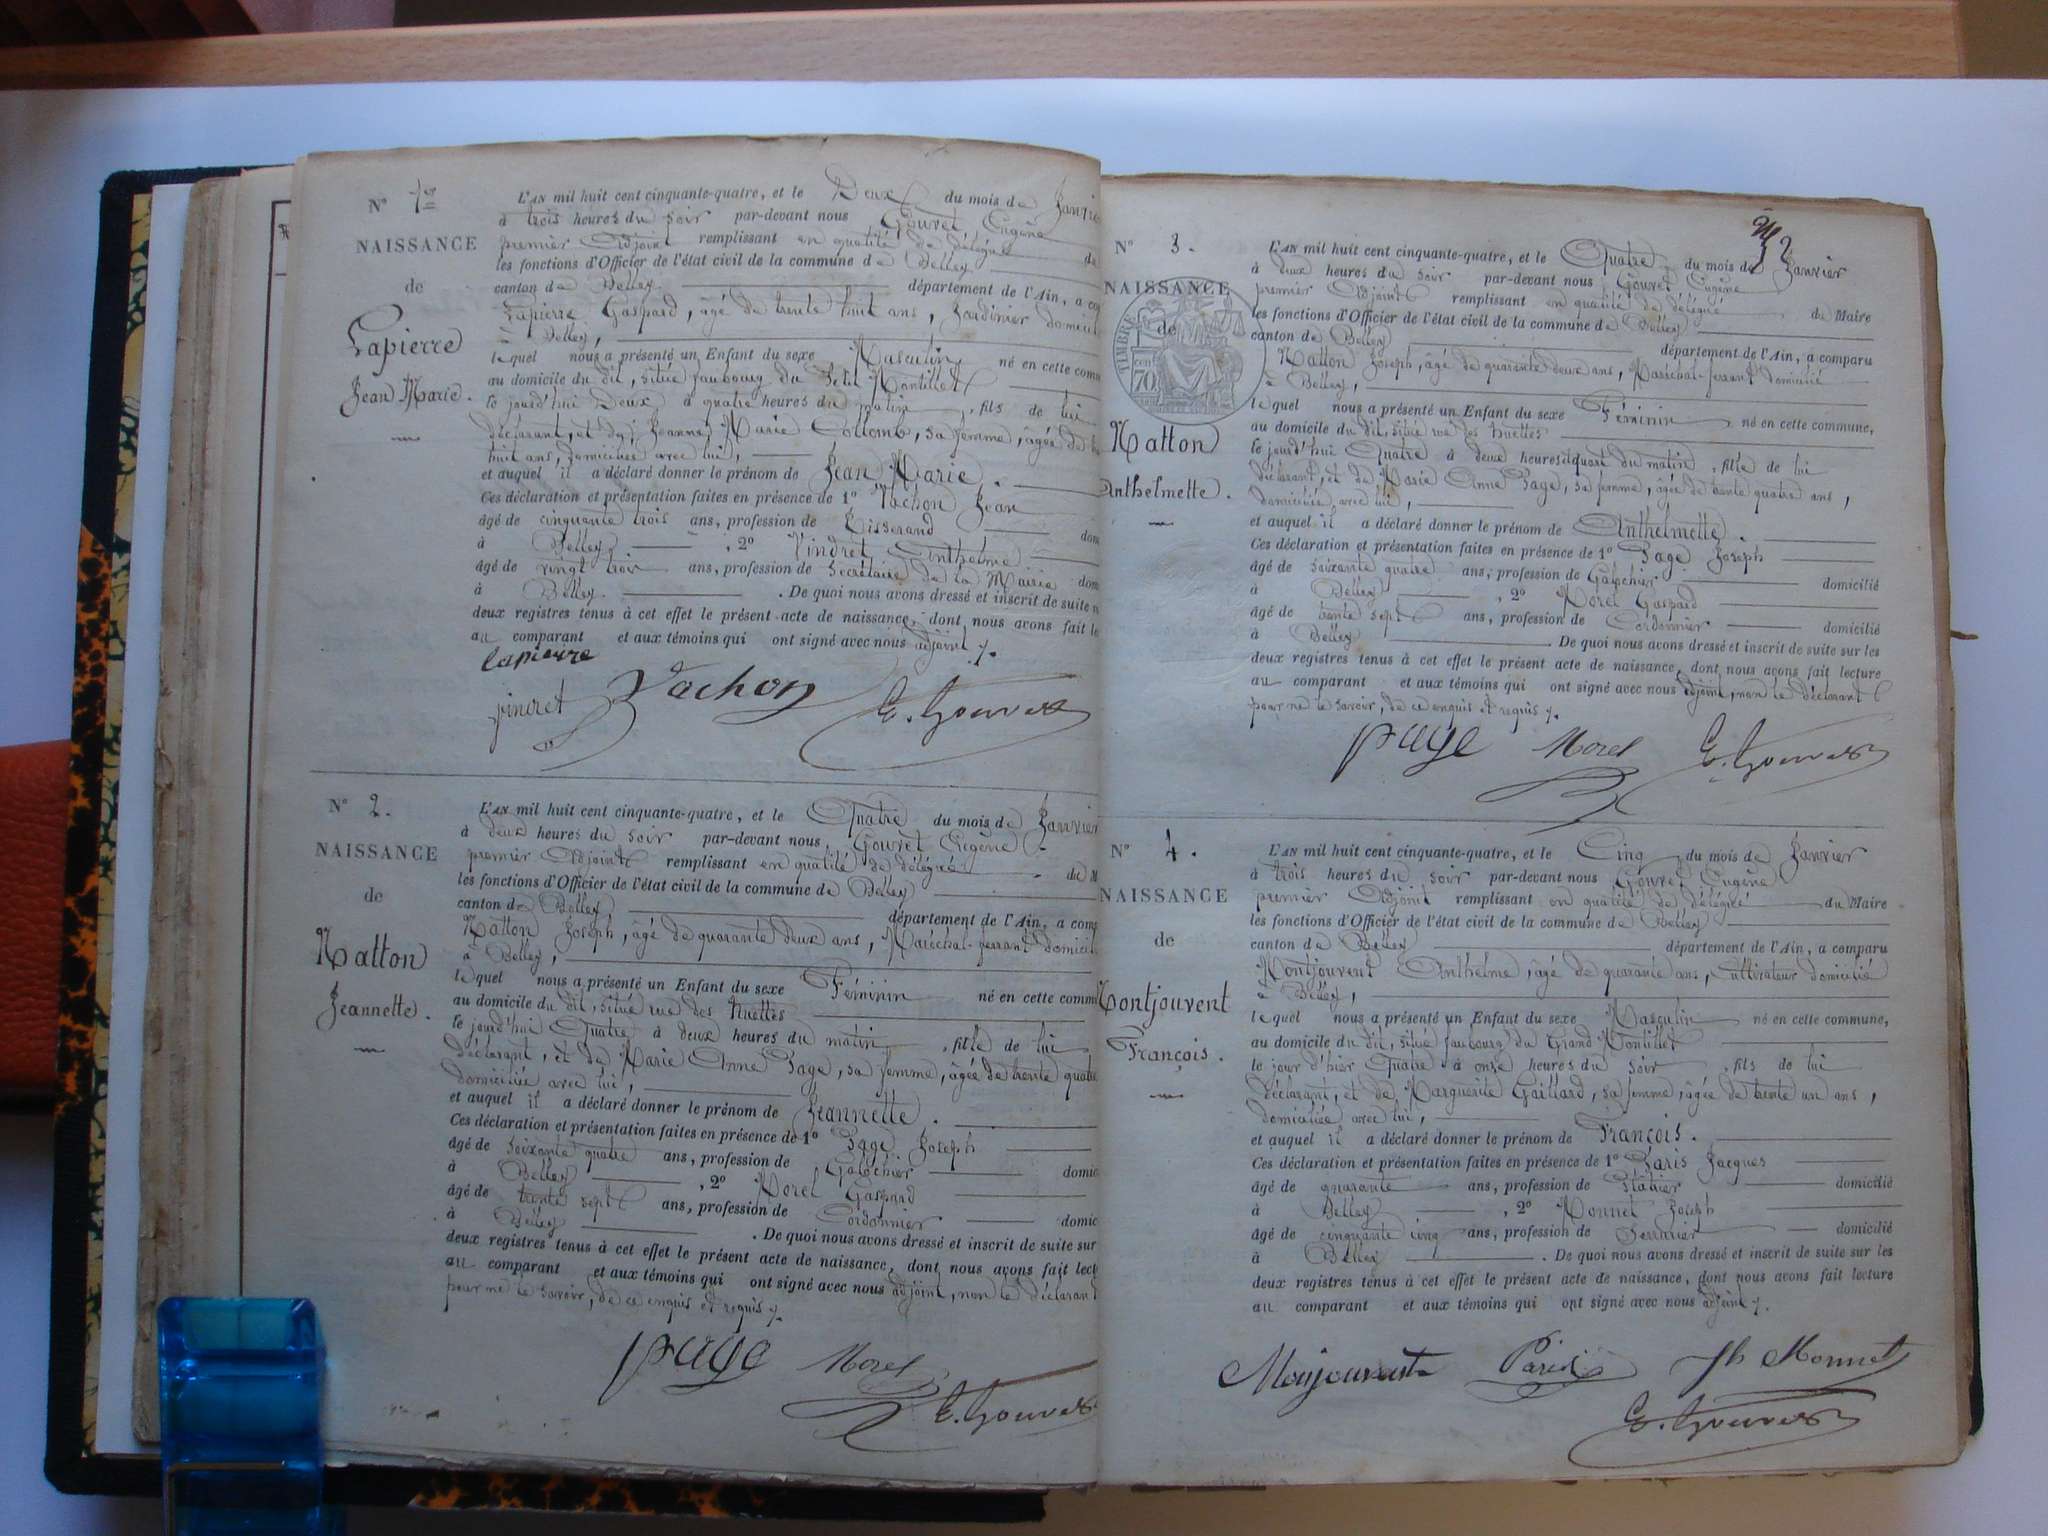 N° 1er
L'AN mil huit cent cinquante-quatre, et le Deux du mois de Janvie
à trois heures du soir par-devant nous Gouvet Eugène
NAISSANCE
premier Adjoint remplissant en qualité de délégué de
les fonctions d'Officier de l'état civil de la commune de Belley
de
canton de Belley département de l'Ain, a co
Lapierre Gaspard, âgé de trente huit ans, Jardinier domicil
à Belley,
Lapierre
lequel nous a présenté un Enfant du sexe Masculin né en cette comm
au domicile du dit, située faubourg du Petit Montillet
Jean Marie.
le jourd'hui Deux à quatre heures du matin, fils de lui
déclarant, et de Jeanne Marie Collomb, sa femme, âgée de
huit ans, domiciliée avec lui,
et auquel il a déclaré donner le prénom de Jean Marie.
Ces déclaration et présentation faites en présence de 1° Vachon Jean
âgé de cinquante trois ans, profession de Tisserand dom
à Belley, 2° Vindret Anthelme
âgé de vingt trois ans, profession de Secrétaire de la Mairie domi
à Belley. De quoi nous avons dressé et inscrit de suite
deux registres tenus à cet effet le présent acte de naissance, dont nous avons fait le
au comparant et aux témoins qui ont signé avec nous adjoint
lapierre
Vachon
E. Gouvet
N° 2.
L'AN mil huit cent cinquante-quatre, et le Quatre du mois de Janvier
à deux heures du soir par-devant nous Gouvet Eugène
NAISSANCE
premier Adjoint remplissant en qualité de délégué du M
les fonctions d'Officier de l'état civil de la commune de Belley
de
canton de Belley département de l'Ain, a comp
Natton Joseph, âgé de quarante deux ans, Maréchal-ferrant domicil
à Belley,
Natton
lequel nous a présenté un Enfant du sexe Féminin né en cette commu
au domicile du dit, situé rue des
Jeannette.
le jourd'hui Quatre à deux heures du matin, fille de lui
déclarant, et de Marie Anne Page, sa femme, âgée de trente quatre
domiciliée avec lui,
et auquel il a déclaré donner le prénom de Jeannette.
Ces déclaration et présentation faites en présence de 1° Page Joseph
âgé de soixante quatre ans, profession de Galochier
à Belley, 2° Morel Gaspard domic
âgé de trente sept ans, profession de Cordonnier
à Belley domic
. De quoi nous avons dressé et inscrit de suite sur
deux registres tenus à cet effet le présent acte de naissance, dont nous avons fait lect
au comparant et aux témoins qui ont signé avec nous adjoint, non le déclarant
pour ne le savoir, de ce enquis et requis
page Morel E. Gouvet
N° 3.
L'AN mil huit cent cinquante-quatre, et le Quatre du mois de Janvier
2
à deux heures du soir par-devant nous Gouvet Eugène
NAISSANCE
premier Adjoint remplissant en qualité de délégué du Maire
de
les fonctions d'Officier de l'état civil de la commune de Belley
TIMBRE
70
canton de Belley département de l'Ain, a comparu
Natton Joseph, âgé de quarante deux ans, Maréchal-ferrant domicilié
à Belley,
lequel nous a présenté un Enfant du sexe Féminin né en cette commune,
Natton
au domicile du dit, situé rue des
le jourd'hui Quatre à deux heures et quart du matin, fille de lui
Anthelmette.
déclarant, et de Marie Anne Page, sa femme, âgée de trente quatre ans,
domiciliée avec lui,
et auquel il a déclaré donner le prénom de Anthelmette.
Ces déclaration et présentation faites en présence de 1° Page Joseph
âgé de soixante quatre ans, profession de Galochier domicilié
à Belley, 2° Morel Gaspard
âgé de trente sept ans, profession de Cordonnier domicilié
à Belley. De quoi nous avons dressé et inscrit de suite sur les
deux registres tenus à cet effet le présent acte de naissance, dont nous avons fait lecture
au comparant et aux témoins qui ont signé avec nous adjoint, non le déclarant
pour ne le savoir, de ce enquis et requis
page Morel E. Gouvet
N° 4.
L'AN mil huit cent cinquante-quatre, et le Cinq du mois de Janvier
à trois heures du soir par-devant nous Gouvet Eugène
NAISSANCE
premier Adjoint remplissant en qualité de délégué du Maire
les fonctions d'Officier de l'état civil de la commune de Belley
de
canton de Belley département de l'Ain, a comparu
Montjouvent Anthelme, âgé de quarante ans, Cultivateur domicilié
à Belley,
Montjouvent
lequel nous a présenté un Enfant du sexe Masculin né en cette commune,
au domicile du dit, situé faubourg du Grand Montillet
François.
le jour d'hier Quatre à onze heures du soir, fils de lui
déclarant, et de Marguerite Gaillard, sa femme, âgée de trente un ans,
domiciliée avec lui,
et auquel il a déclaré donner le prénom de François.
Ces déclaration et présentation faites en présence de 1° Paris Jacques
âgé de quarante ans, profession de Plâtrier domicilié
à Belley, 2° Monnet Joseph
âgé de cinquante cinq ans, profession de Serrurier domicilié
à Belley. De quoi nous avons dressé et inscrit de suite sur les
deux registres tenus à cet effet le présent acte de naissance, dont nous avons fait lecture
au comparant et aux témoins qui ont signé avec nous adjoint
Monjouvent Paris Jh Monnet
E. Gouvet